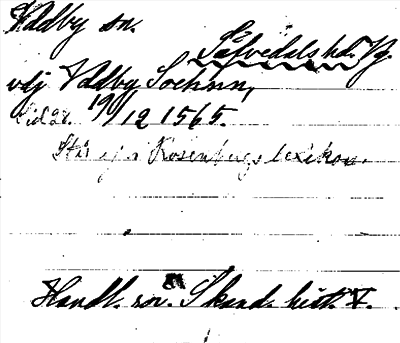 Valby sn.
Säfvedals hd. Vg.
vdj Valby Sochnn,
Lid 28. 19/12 1565.
Står ej i Rosenbergs lexikon.
Handl. rör. Skand. hist. V.